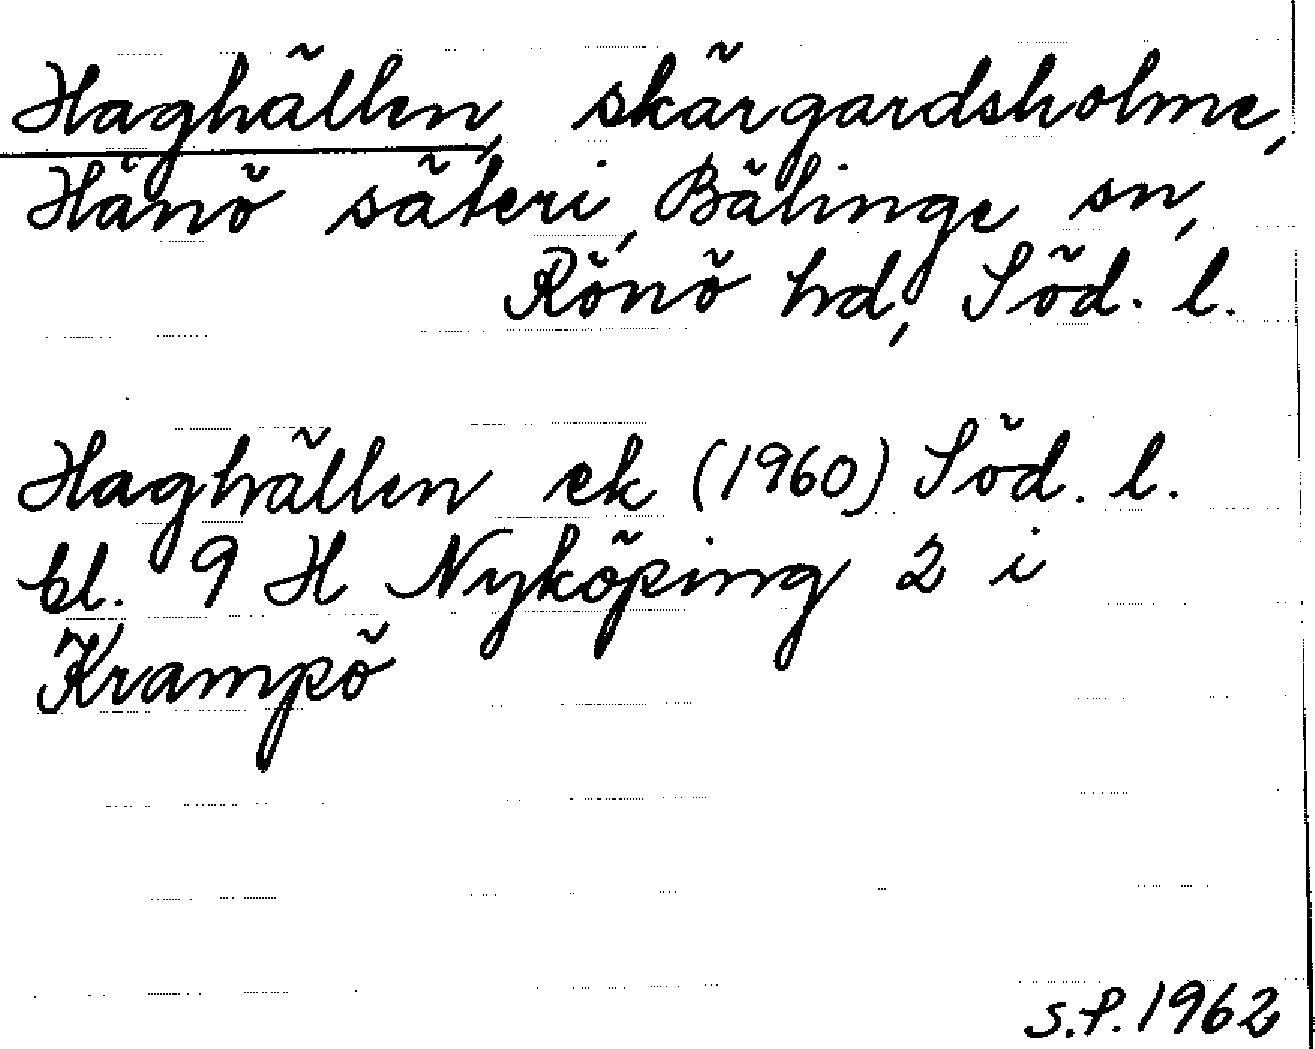 Haghällen, skärgardsholme,
Hånö säteri, Bälinge sn,
Rönö hd, Söd. l.
Haghällen ek (1960) Söd. l.
bl. 9 H Nyköping 2 i
Krampö
S.P. 1962